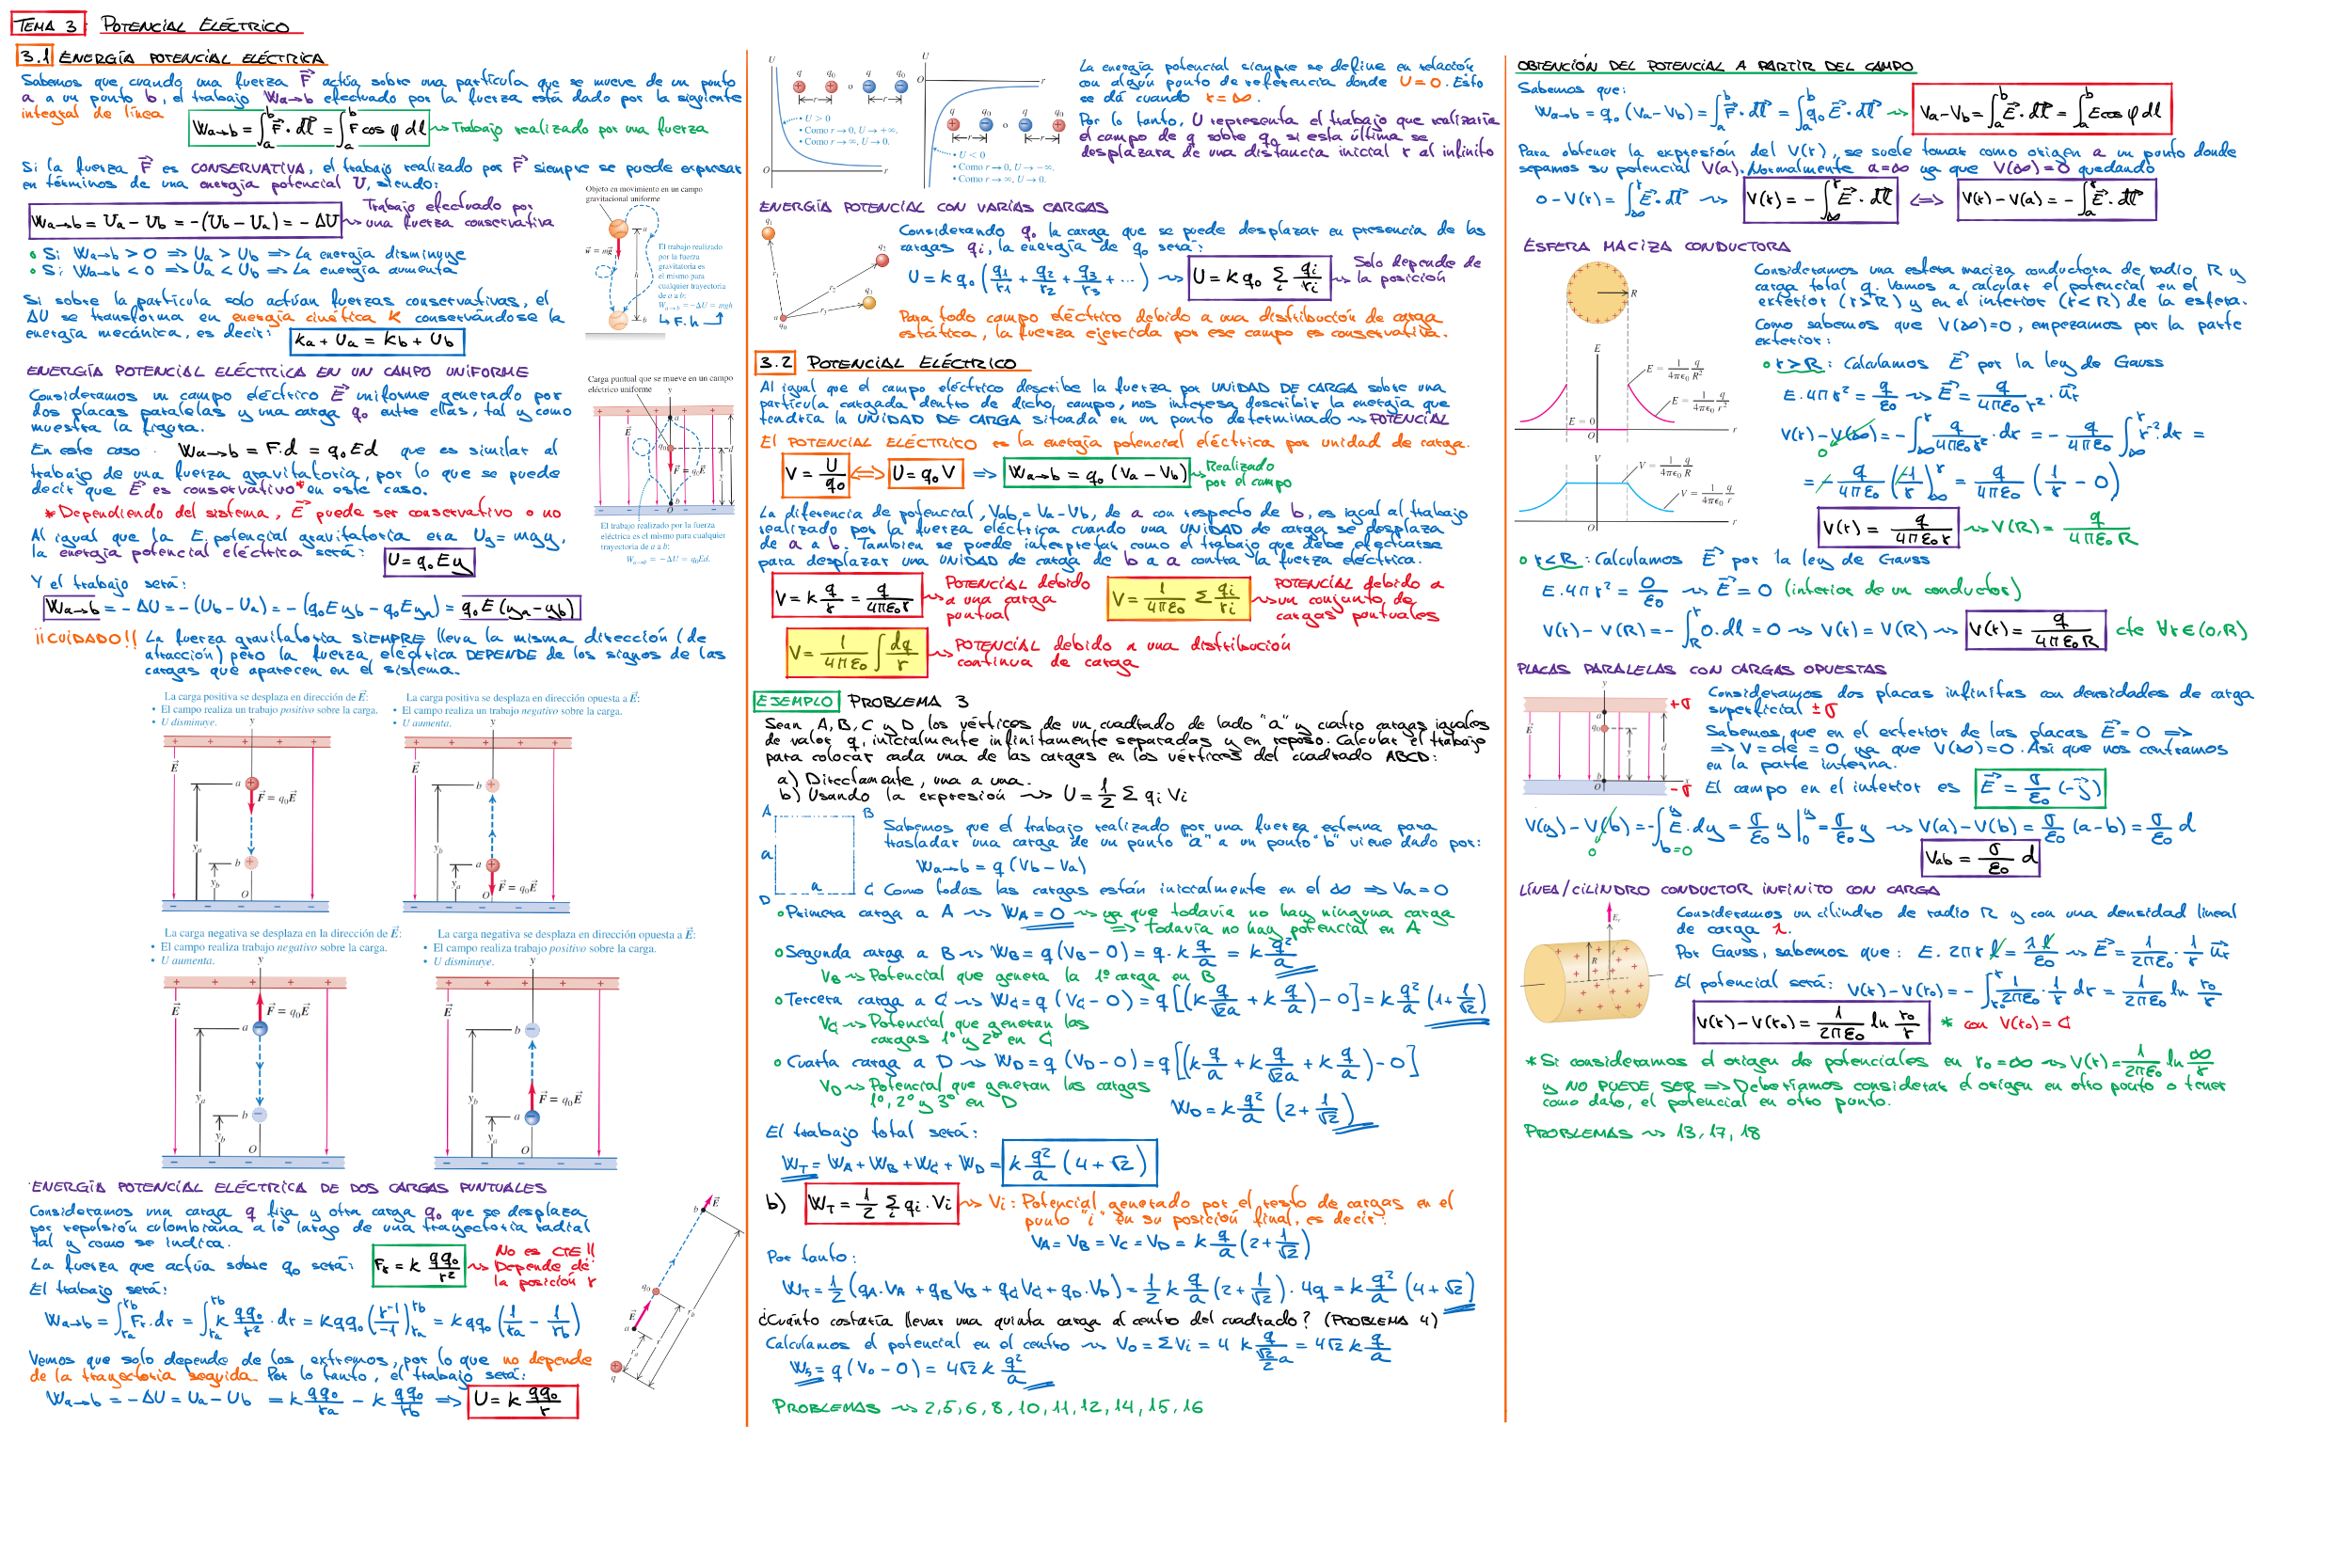 TEMA 3 POTENCIAL ELÉCTRICO
3.1 ENERGÍA POTENCIAL ELÉCTRICA
Sabemos que cuando una fuerza F⃗ actúa sobre una partícula que se mueve de un punto
a a un punto b, el trabajo Wa→b efectuado por la fuerza está dado por la siguiente
integral de línea
Wa→b = ∫ₐᵇ F⃗·dl⃗ = ∫ₐᵇ F cos φ dl ⇝ Trabajo realizado por una fuerza
Si la fuerza F⃗ es CONSERVATIVA, el trabajo realizado por F⃗ siempre se puede expresar
en términos de una energía potencial U, siendo:
Wa→b = Ua - Ub = -(Ub - Ua) = -ΔU ⇝ Trabajo efectuado por
una fuerza conservativa
• Si Wa→b > 0 ⇒ Ua > Ub ⇒ La energía disminuye
• Si Wa→b < 0 ⇒ Ua < Ub ⇒ La energía aumenta
Si sobre la partícula solo actúan fuerzas conservativas, el
ΔU se transforma en energía cinética K conservándose la
energía mecánica, es decir: Ka + Ua = Kb + Ub
Objeto en movimiento en un campo
gravitacional uniforme
w⃗ = mg⃗
a
h
b
El trabajo realizado
por la fuerza
gravitatoria es
el mismo para
cualquier trayectoria
de a a b:
Wa→b = -ΔU = mgh
↳ F·h
ENERGÍA POTENCIAL ELÉCTRICA EN UN CAMPO UNIFORME
Consideramos un campo eléctrico E⃗ uniforme generado por
dos placas paralelas y una carga q₀ entre ellas, tal y como
muestra la figura.
En este caso Wa→b = F·d = q₀Ed que es similar al
trabajo de una fuerza gravitatoria, por lo que se puede
decir que E⃗ es conservativo* en este caso.
* Dependiendo del sistema, E⃗ puede ser conservativo o no
Al igual que la E. potencial gravitatoria era Ug = mgy,
la energía potencial eléctrica será: U = q₀Ey
Y el trabajo será:
Wa→b = -ΔU = -(Ub - Ua) = -(q₀Eyb - q₀Eya) = q₀E(ya - yb)
Carga puntual que se mueve en un campo
eléctrico uniforme
y
a
E⃗
q₀
d
F⃗ = q₀E⃗
y
b
O
El trabajo realizado por la fuerza
eléctrica es el mismo para cualquier
trayectoria de a a b:
Wa→b = -ΔU = q₀Ed.
¡¡CUIDADO!! La fuerza gravitatoria SIEMPRE lleva la misma dirección (de
atracción) pero la fuerza eléctrica DEPENDE de los signos de las
cargas que aparecen en el sistema.
La carga positiva se desplaza en dirección de E⃗:
• El campo realiza un trabajo positivo sobre la carga.
• U disminuye.
y
E⃗
a
F⃗ = q₀E⃗
ya
b
yb
O
La carga positiva se desplaza en dirección opuesta a E⃗:
• El campo realiza un trabajo negativo sobre la carga.
• U aumenta.
y
E⃗
b
yb
a
ya
O
F⃗ = q₀E⃗
La carga negativa se desplaza en la dirección de E⃗:
• El campo realiza trabajo negativo sobre la carga.
• U aumenta.
y
E⃗
F⃗ = q₀E⃗
a
ya
b
yb
O
La carga negativa se desplaza en dirección opuesta a E⃗:
• El campo realiza trabajo positivo sobre la carga.
• U disminuye.
y
E⃗
b
yb
F⃗ = q₀E⃗
a
ya
O
ENERGÍA POTENCIAL ELÉCTRICA DE DOS CARGAS PUNTUALES
Consideramos una carga q fija y otra carga q₀ que se desplaza
por repulsión culombiana a lo largo de una trayectoria radial
tal y como se indica.
La fuerza que actúa sobre q₀ será: Fr = k qq₀/r² ⇝ No es CTE!!
Depende de
la posición r
El trabajo será:
Wa→b = ∫ra^rb Fr·dr = ∫ra^rb k qq₀/r² · dr = kqq₀ (r⁻¹/-1)ra^rb = kqq₀ (1/ra - 1/rb)
Vemos que solo depende de los extremos, por lo que no depende
de la trayectoria seguida. Por lo tanto, el trabajo será:
Wa→b = -ΔU = Ua - Ub = k qq₀/ra - k qq₀/rb ⇒ U = k qq₀/r
b E⃗
q₀
E⃗
a
ra
r
rb
q
U
q q₀ o q q₀
r
• U > 0
• Como r → 0, U → +∞.
• Como r → ∞, U → 0.
O r
U
O r
q q₀ o q q₀
r r
• U < 0
• Como r → 0, U → -∞.
• Como r → ∞, U → 0.
La energía potencial siempre se define en relación
con algún punto de referencia donde U = 0. Esto
se da cuando r = ∞.
Por lo tanto, U representa el trabajo que realizaría
el campo de q sobre q₀ si esta última se
desplazara de una distancia inicial r al infinito
ENERGÍA POTENCIAL CON VARIAS CARGAS
q₁
q₂
q₃
r₁
r₂
r₃
a
q₀
Considerando q₀ la carga que se puede desplazar en presencia de las
cargas qi, la energía de q₀ será:
U = k q₀ (q₁/r₁ + q₂/r₂ + q₃/r₃ + ...) ⇝ U = k q₀ Σi qi/ri ⇝ Solo depende de
la posición
Para todo campo eléctrico debido a una distribución de carga
estática, la fuerza ejercida por ese campo es conservativa.
3.2 POTENCIAL ELÉCTRICO
Al igual que el campo eléctrico describe la fuerza por UNIDAD DE CARGA sobre una
partícula cargada dentro de dicho campo, nos interesa describir la energía que
tendría la UNIDAD DE CARGA situada en un punto determinado ⇝ POTENCIAL
El POTENCIAL ELÉCTRICO es la energía potencial eléctrica por unidad de carga.
V = U/q₀ ⇔ U = q₀V ⇒ Wa→b = q₀ (Va - Vb) ⇝ Realizado
por el campo
La diferencia de potencial, Vab = Va - Vb, de a con respecto de b, es igual al trabajo
realizado por la fuerza eléctrica cuando una UNIDAD de carga se desplaza
de a a b. Tambien se puede interpretar como el trabajo que debe efectuarse
para desplazar una UNIDAD de carga de b a a contra la fuerza eléctrica.
V = k q/r = q/4πε₀r ⇝ POTENCIAL debido
a una carga
puntual
V = 1/4πε₀ Σ qi/ri ⇝ POTENCIAL debido a
un conjunto de
cargas puntuales
V = 1/4πε₀ ∫ dq/r ⇝ POTENCIAL debido a una distribución
continua de carga
EJEMPLO PROBLEMA 3
Sean A, B, C y D los vértices de un cuadrado de lado "a" y cuatro cargas iguales
de valor q, inicialmente infinitamente separadas y en reposo. Calcular el trabajo
para colocar cada una de las cargas en los vértices del cuadrado ABCD:
a) Directamente, una a una.
b) Usando la expresión ⇝ U = 1/2 Σ qi Vi
A B
a
D a C
Sabemos que el trabajo realizado por una fuerza externa para
trasladar una carga de un punto "a" a un punto "b" viene dado por:
Wa→b = q (Vb - Va)
Como todas las cargas están inicialmente en el ∞ ⇒ Va = 0
• Primera carga a A ⇝ WA = 0 ⇝ ya que todavía no hay ninguna carga
⇒ todavía no hay potencial en A
• Segunda carga a B ⇝ WB = q (VB - 0) = q · k q/a = k q²/a
VB ⇝ Potencial que genera la 1º carga en B
• Tercera carga a C ⇝ WC = q (VC - 0) = q [(k q/√2a + k q/a) - 0] = k q²/a (1 + 1/√2)
VC ⇝ Potencial que generan las
cargas 1º y 2º en C
• Cuarta carga a D ⇝ WD = q (VD - 0) = q [(k q/a + k q/√2a + k q/a) - 0]
VD ⇝ Potencial que generan las cargas
1º, 2º y 3º en D
WD = k q²/a (2 + 1/√2)
El trabajo total será:
WT = WA + WB + WC + WD = k q²/a (4 + √2)
b) WT = 1/2 Σi qi · Vi ⇝ Vi: Potencial generado por el resto de cargas en el
punto "i" en su posición final, es decir:
VA = VB = VC = VD = k q/a (2 + 1/√2)
Por tanto:
WT = 1/2 (qA·VA + qB VB + qC VC + qD·VD) = 1/2 k q/a (2 + 1/√2) · 4q = k q²/a (4 + √2)
¿Cuánto costaría llevar una quinta carga al centro del cuadrado? (PROBLEMA 4)
Calculamos el potencial en el centro ⇝ V₀ = ΣVi = 4 k q/(√2/2 a) = 4√2 k q/a
W₅ = q (V₀ - 0) = 4√2 k q²/a
PROBLEMAS ⇝ 2, 5, 6, 8, 10, 11, 12, 14, 15, 16
OBTENCIÓN DEL POTENCIAL A PARTIR DEL CAMPO
Sabemos que:
Wa→b = q₀ (Va - Vb) = ∫ₐᵇ F⃗·dl⃗ = ∫ₐᵇ q₀ E⃗·dl⃗ ⇝ Va - Vb = ∫ₐᵇ E⃗·dl⃗ = ∫ₐᵇ E cos φ dl
Para obtener la expresión del V(r), se suele tomar como origen a un punto donde
sepamos su potencial V(a). Normalmente a = ∞ ya que V(∞) = 0 quedando
0 - V(r) = ∫∞^r E⃗·dl⃗ ⇝ V(r) = -∫∞^r E⃗·dl⃗ ⇔ V(r) - V(a) = -∫a^r E⃗·dl⃗
ESFERA MACIZA CONDUCTORA
R
E
E = 1/4πε₀ q/R²
E = 1/4πε₀ q/r²
E = 0
O r
V
V = 1/4πε₀ q/R
V = 1/4πε₀ q/r
O r
Consideramos una esfera maciza conductora de radio R y
carga total q. Vamos a calcular el potencial en el
exterior (r>R) y en el interior (r<R) de la esfera.
Como sabemos que V(∞)=0, empezamos por la parte
exterior:
• r > R: Calculamos E⃗ por la ley de Gauss
E·4πr² = q/ε₀ ⇝ E⃗ = q/4πε₀r² · u⃗r
V(r) - V(∞) = -∫∞^r q/4πε₀r² · dr = - q/4πε₀ ∫∞^r r⁻² dr =
0
= - q/4πε₀ (-1/r)∞^r = q/4πε₀ (1/r - 0)
V(r) = q/4πε₀r ⇝ V(R) = q/4πε₀R
• r < R: Calculamos E⃗ por la ley de Gauss
E·4πr² = 0/ε₀ ⇝ E⃗ = 0 (interior de un conductor)
V(r) - V(R) = -∫R^r 0·dl = 0 ⇝ V(r) = V(R) ⇝ V(r) = q/4πε₀R cte ∀r∈(0,R)
PLACAS PARALELAS CON CARGAS OPUESTAS
y
+σ
a
E⃗
q₀
y
d
b
O
x
-σ
Consideramos dos placas infinitas con densidades de carga
superficial ±σ
Sabemos que en el exterior de las placas E⃗ = 0 ⇒
⇒ V = cte = 0, ya que V(∞) = 0. Así que nos centramos
en la parte interna.
El campo en el interior es E⃗ = σ/ε₀ (-j⃗)
V(y) - V(b) = -∫b=0^y E⃗·dy = σ/ε₀ y|₀^y = σ/ε₀ y ⇝ V(a) - V(b) = σ/ε₀ (a-b) = σ/ε₀ d
0
Vab = σ/ε₀ d
LÍNEA/CILINDRO CONDUCTOR INFINITO CON CARGA
Er
r
R
Consideramos un cilindro de radio R y con una densidad lineal
de carga λ.
Por Gauss, sabemos que: E·2πrl = λl/ε₀ ⇝ E⃗ = λ/2πε₀ · 1/r u⃗r
El potencial será: V(r) - V(r₀) = -∫r₀^r λ/2πε₀ · 1/r dr = λ/2πε₀ ln r₀/r
V(r) - V(r₀) = λ/2πε₀ ln r₀/r * con V(r₀) = C
* Si consideramos el origen de potenciales en r₀ = ∞ ⇝ V(r) = λ/2πε₀ ln ∞/r
y NO PUEDE SER ⇒ Deberíamos considerar el origen en otro punto o tener
como dato, el potencial en otro punto.
PROBLEMAS ⇝ 13, 17, 18